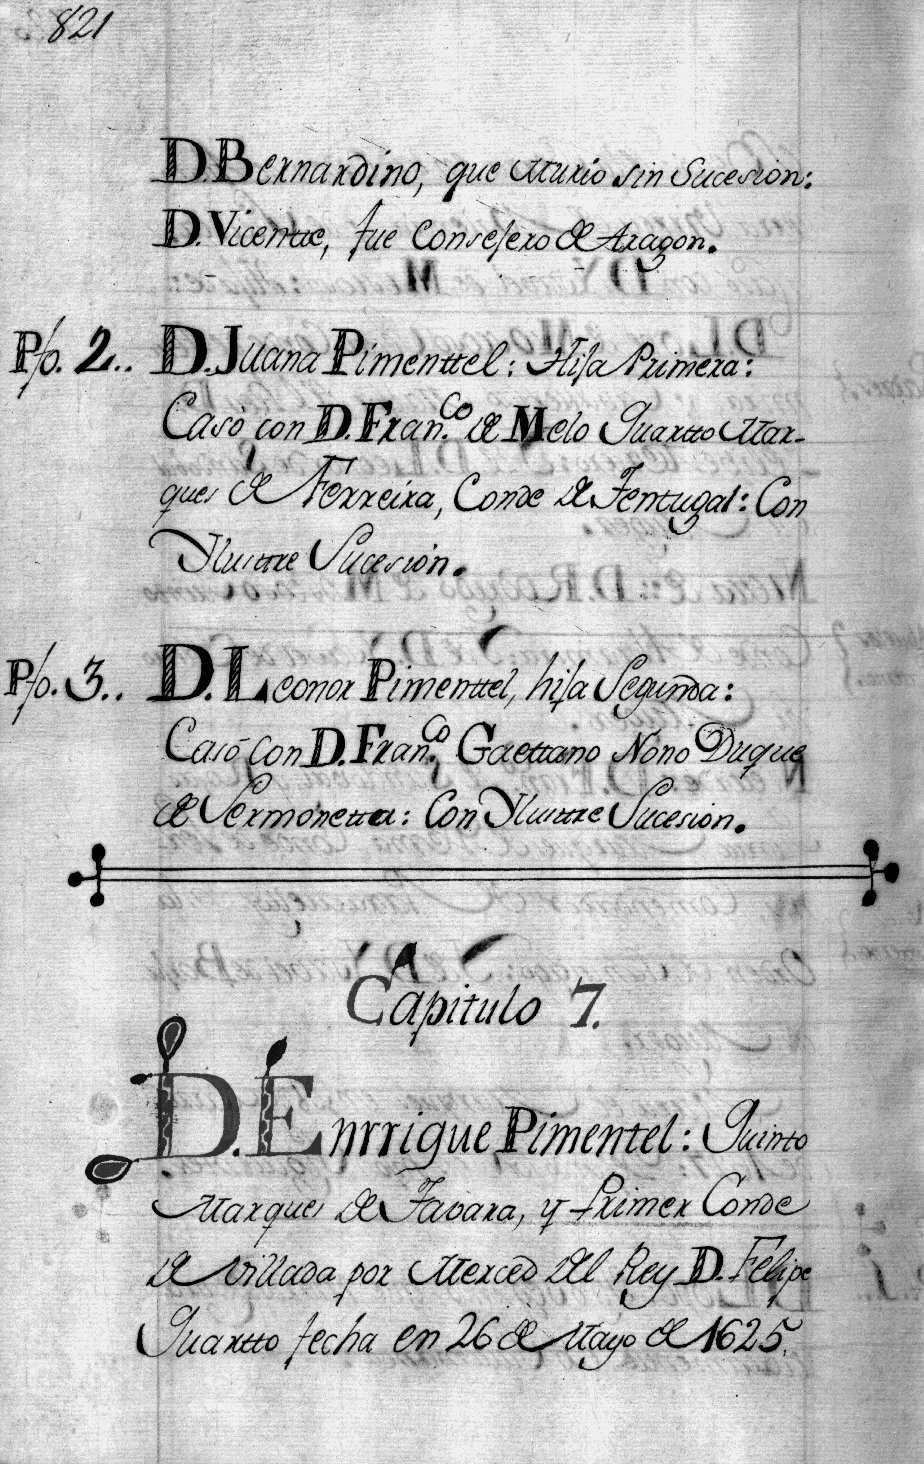 821
D. Bernardino, que Murio sin Sucesion:
D. Vicentte, fue Consejero de Aragon.
Pfo. 2.. D. Juana Pimenttel: Hija Primera:
Casó con D. Fran.co de Melo Quartto Mar-
ques de Ferreira, Conde de Tentugal: Con
Ylusttre Sucesion.
Pfo. 3.. D. Leonor Pimenttel, hija Segunda:
Casó Con D. Fran.co Gaettano Nono Duque
de Sermonetta: Con Ylusttre Sucesion.
Capitulo 7.
D. Enrrique Pimentel: Quinto
Marques de Tavara, y Primer Conde
de Villada por Merced del Rey D. Felipe
Quartto fecha en 26 de Mayo de 1625.